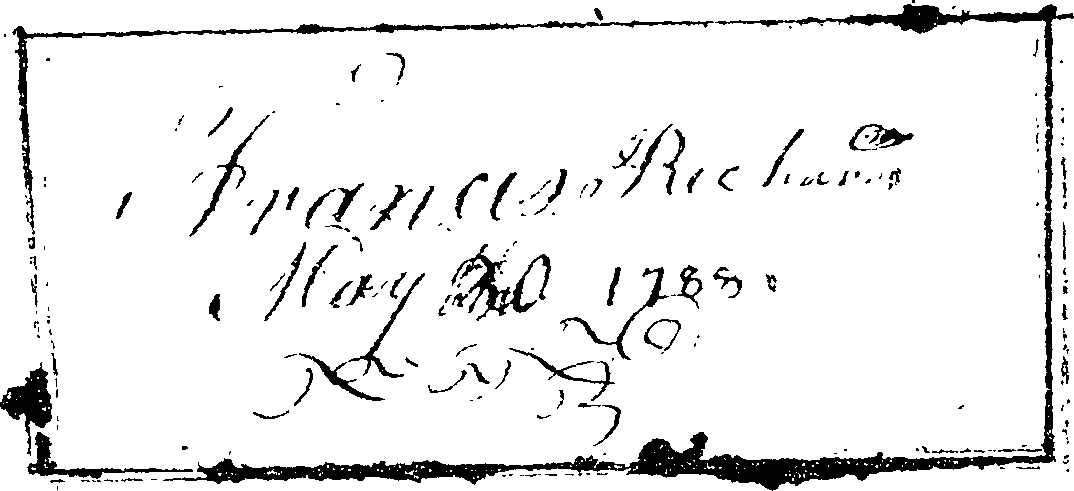 Francis Richard
May 20 1788